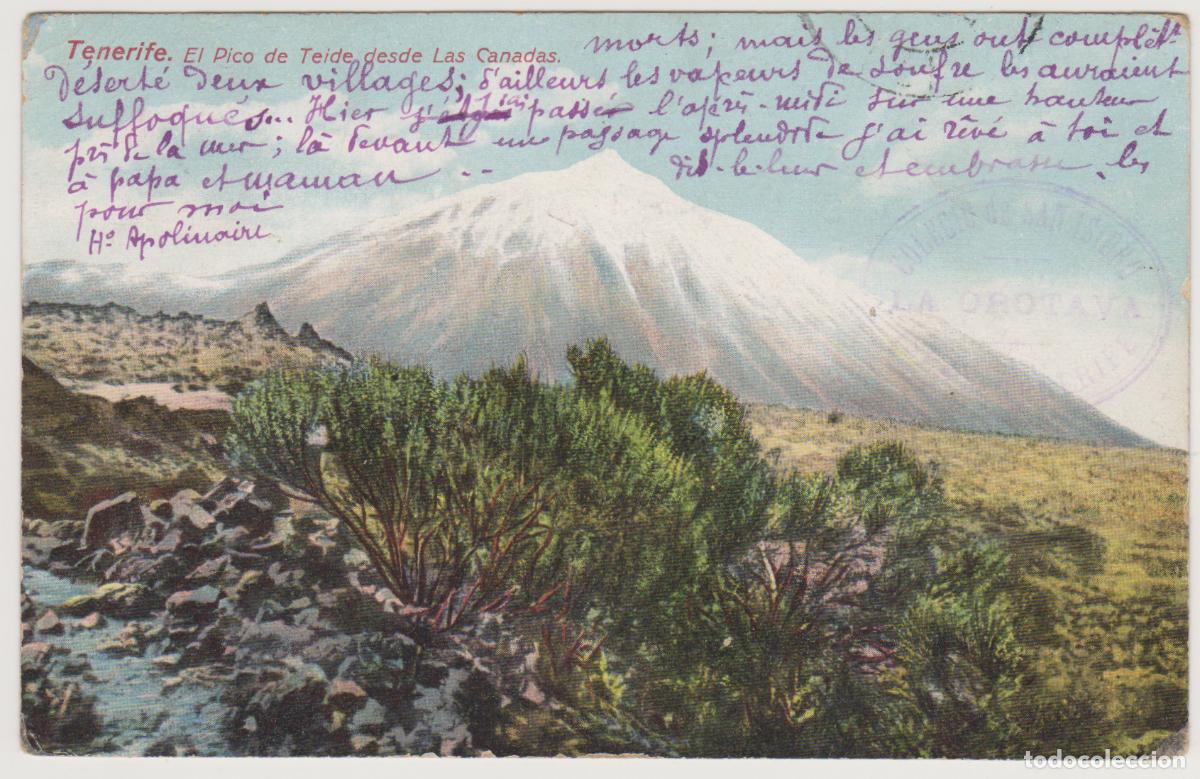 Tenerife. El Pico de Teide desde Las Canadas.
morts; mais les gens ont complèt.t
déserté deux villages; d'ailleurs les vapeurs de soufre les auraient
suffoqués... Hier j'ai passé l'après-midi sur une hauteur
près de la mer; là devant un paysage splendide j'ai rêvé à toi et
à papa et maman... dis-le-leur et embrasse-les
pour moi
Ho Apolinaire
COLEGIO de SAN ISIDRO
LA OROTAVA
todocoleccion